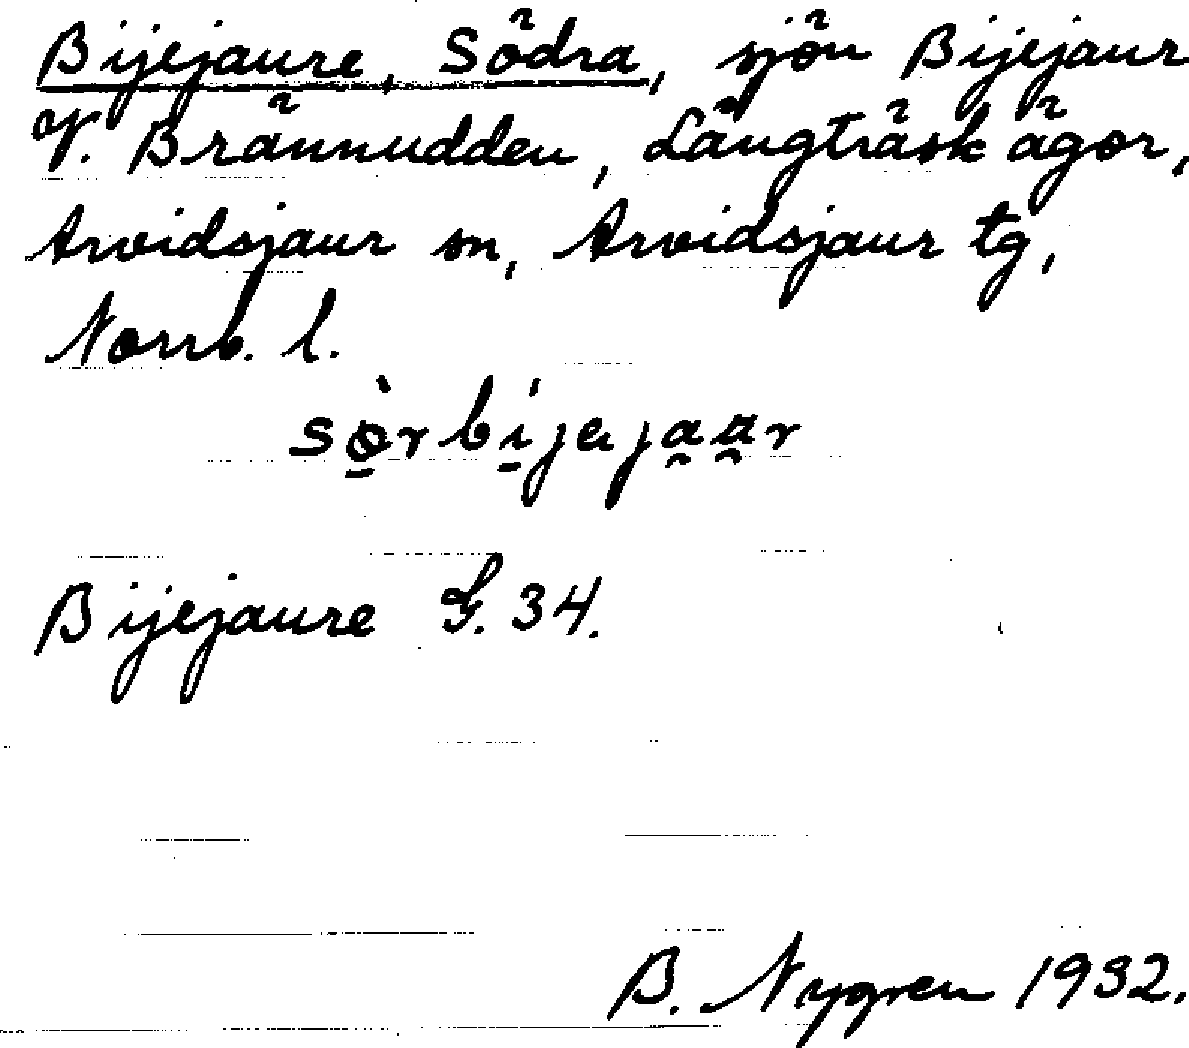 Bijejaure, Södra, sjön Bijejaur
V. Brännudden, Långträsk ägor,
Arvidsjaur sn, Arvidsjaur tg,
Norrb. l.
sö̀rbijejaar
Bijejaure G. 34.
B. Nygren 1932.